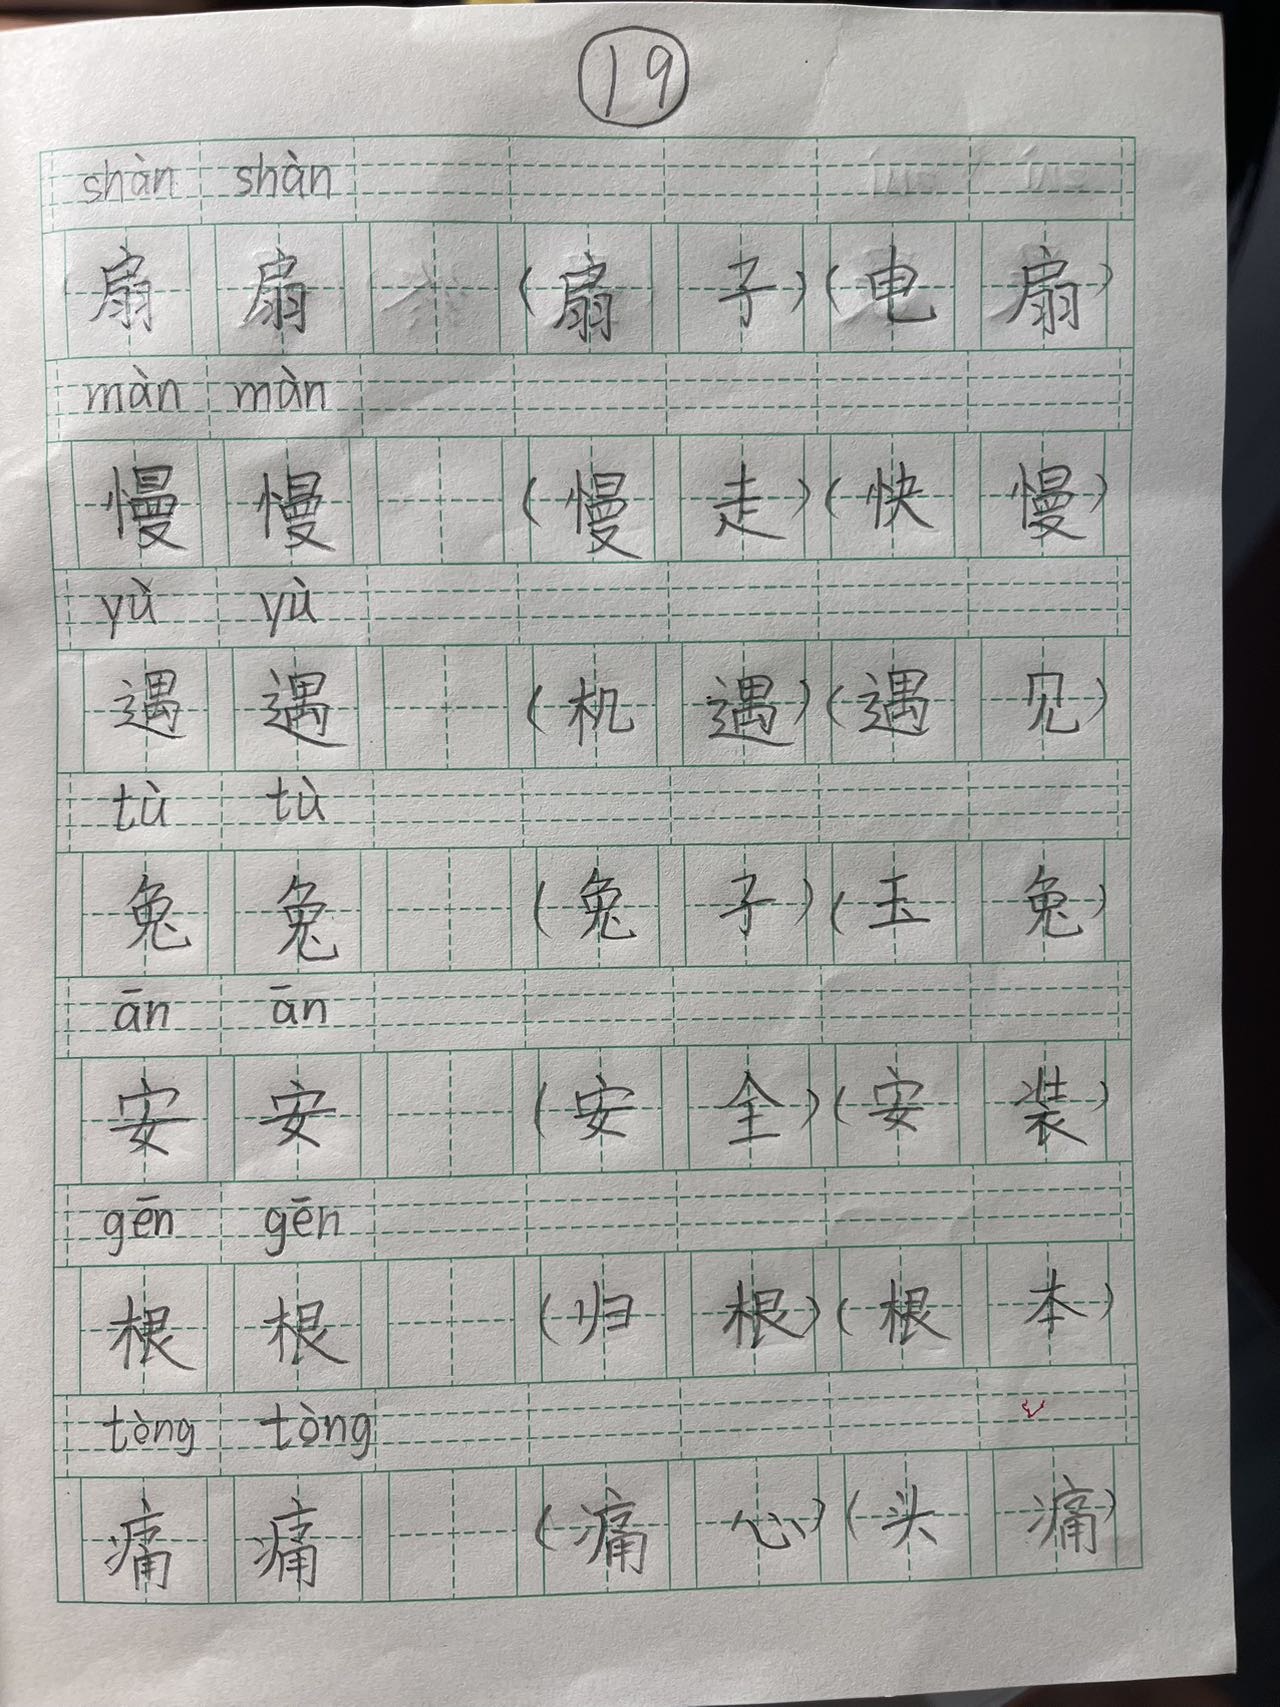 19
shàn shàn
扇 扇 (扇 子)(电 扇)
màn màn
慢 慢 (慢 走)(快 慢)
yù yù
遇 遇 (机 遇)(遇 见)
tù tù
兔 兔 (兔 子)(玉 兔)
ān ān
安 安 (安 全)(安 装)
gēn gēn
根 根 (归 根)(根 本)
tòng tòng
痛 痛 (痛 心)(头 痛)